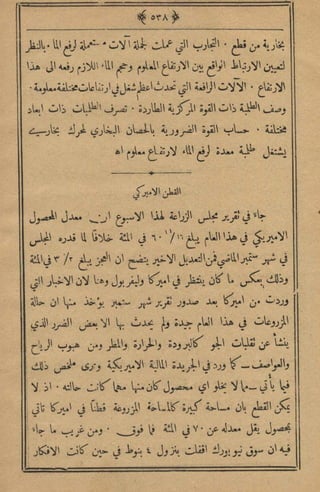 ﴿ ٥٣٨ ﴾
بخارية من قطع ٠ التجارب التي عملت لجملة آلات مستعملة لرفع الماء ٠ بالنظر
لتعيين الارتباط الواقع بين الارتفاع المعلوم وحجم الماء اللازم رفعه الى هذا
الارتفاع ٠ الآلات الرافعة التي تحدث اعظم شغل في ارتفاعات مختلفة معلومة ٠
وصف الطلمبة ذات القوة المركزية الطاردة ٠ تصرف الطلمبات ذات ابعاد
مختلفة ٠ حساب القوة الضرورية بالحصان البخاري لمحرك بخاري
يشتغل طلمبة معدة لرفع الماء لارتفاع معلوم اه
القطن الاميركي
جاء في تقرير مجلس الزراعة لهذا الاسبوع ان معدل المحصول
الاميركي في هذا العام يبلغ ٦٠ في المئة خلافًا لما قدره المجلس
في شهر ستمبر الماضي فمن التعديل الاخير يتضح ان العجز يبلغ ٣/٢ في المئة
وذلك بعكس ما كان ينتظر في اميركا وليفربول وهنا لان الاخبار التي
وردت من اميركا بعد صدور تقرير شهر ستمبر يؤخذ منها ان حالة
المزروعات في هذا العام جيدة ولم يحدث بها الا بعض الضرر الذي
ينشأ عن تقلبات الجو كالبرودة والحرارة والمطر ومن هبوب الرياح
والعواصف — كما ورد في الجريدة المالية الاميركية وترى ملخص ذلك
فيما يأتي — مما لا يخلو اي محصول كان منها مهما كانت حالته ٠ اذ لا
يمكن القطع بان مساحة كبيرة كالمساحة المزروعة قطنًا في اميركا تاتي
بمحصول يقل معدله عن ٧٠ في المئة فما فوق ٠ ومن غريب ما جاء
فيه ان سوق نيويورك اقفلت بنزول ٤ بنوط في حين كانت الافكار